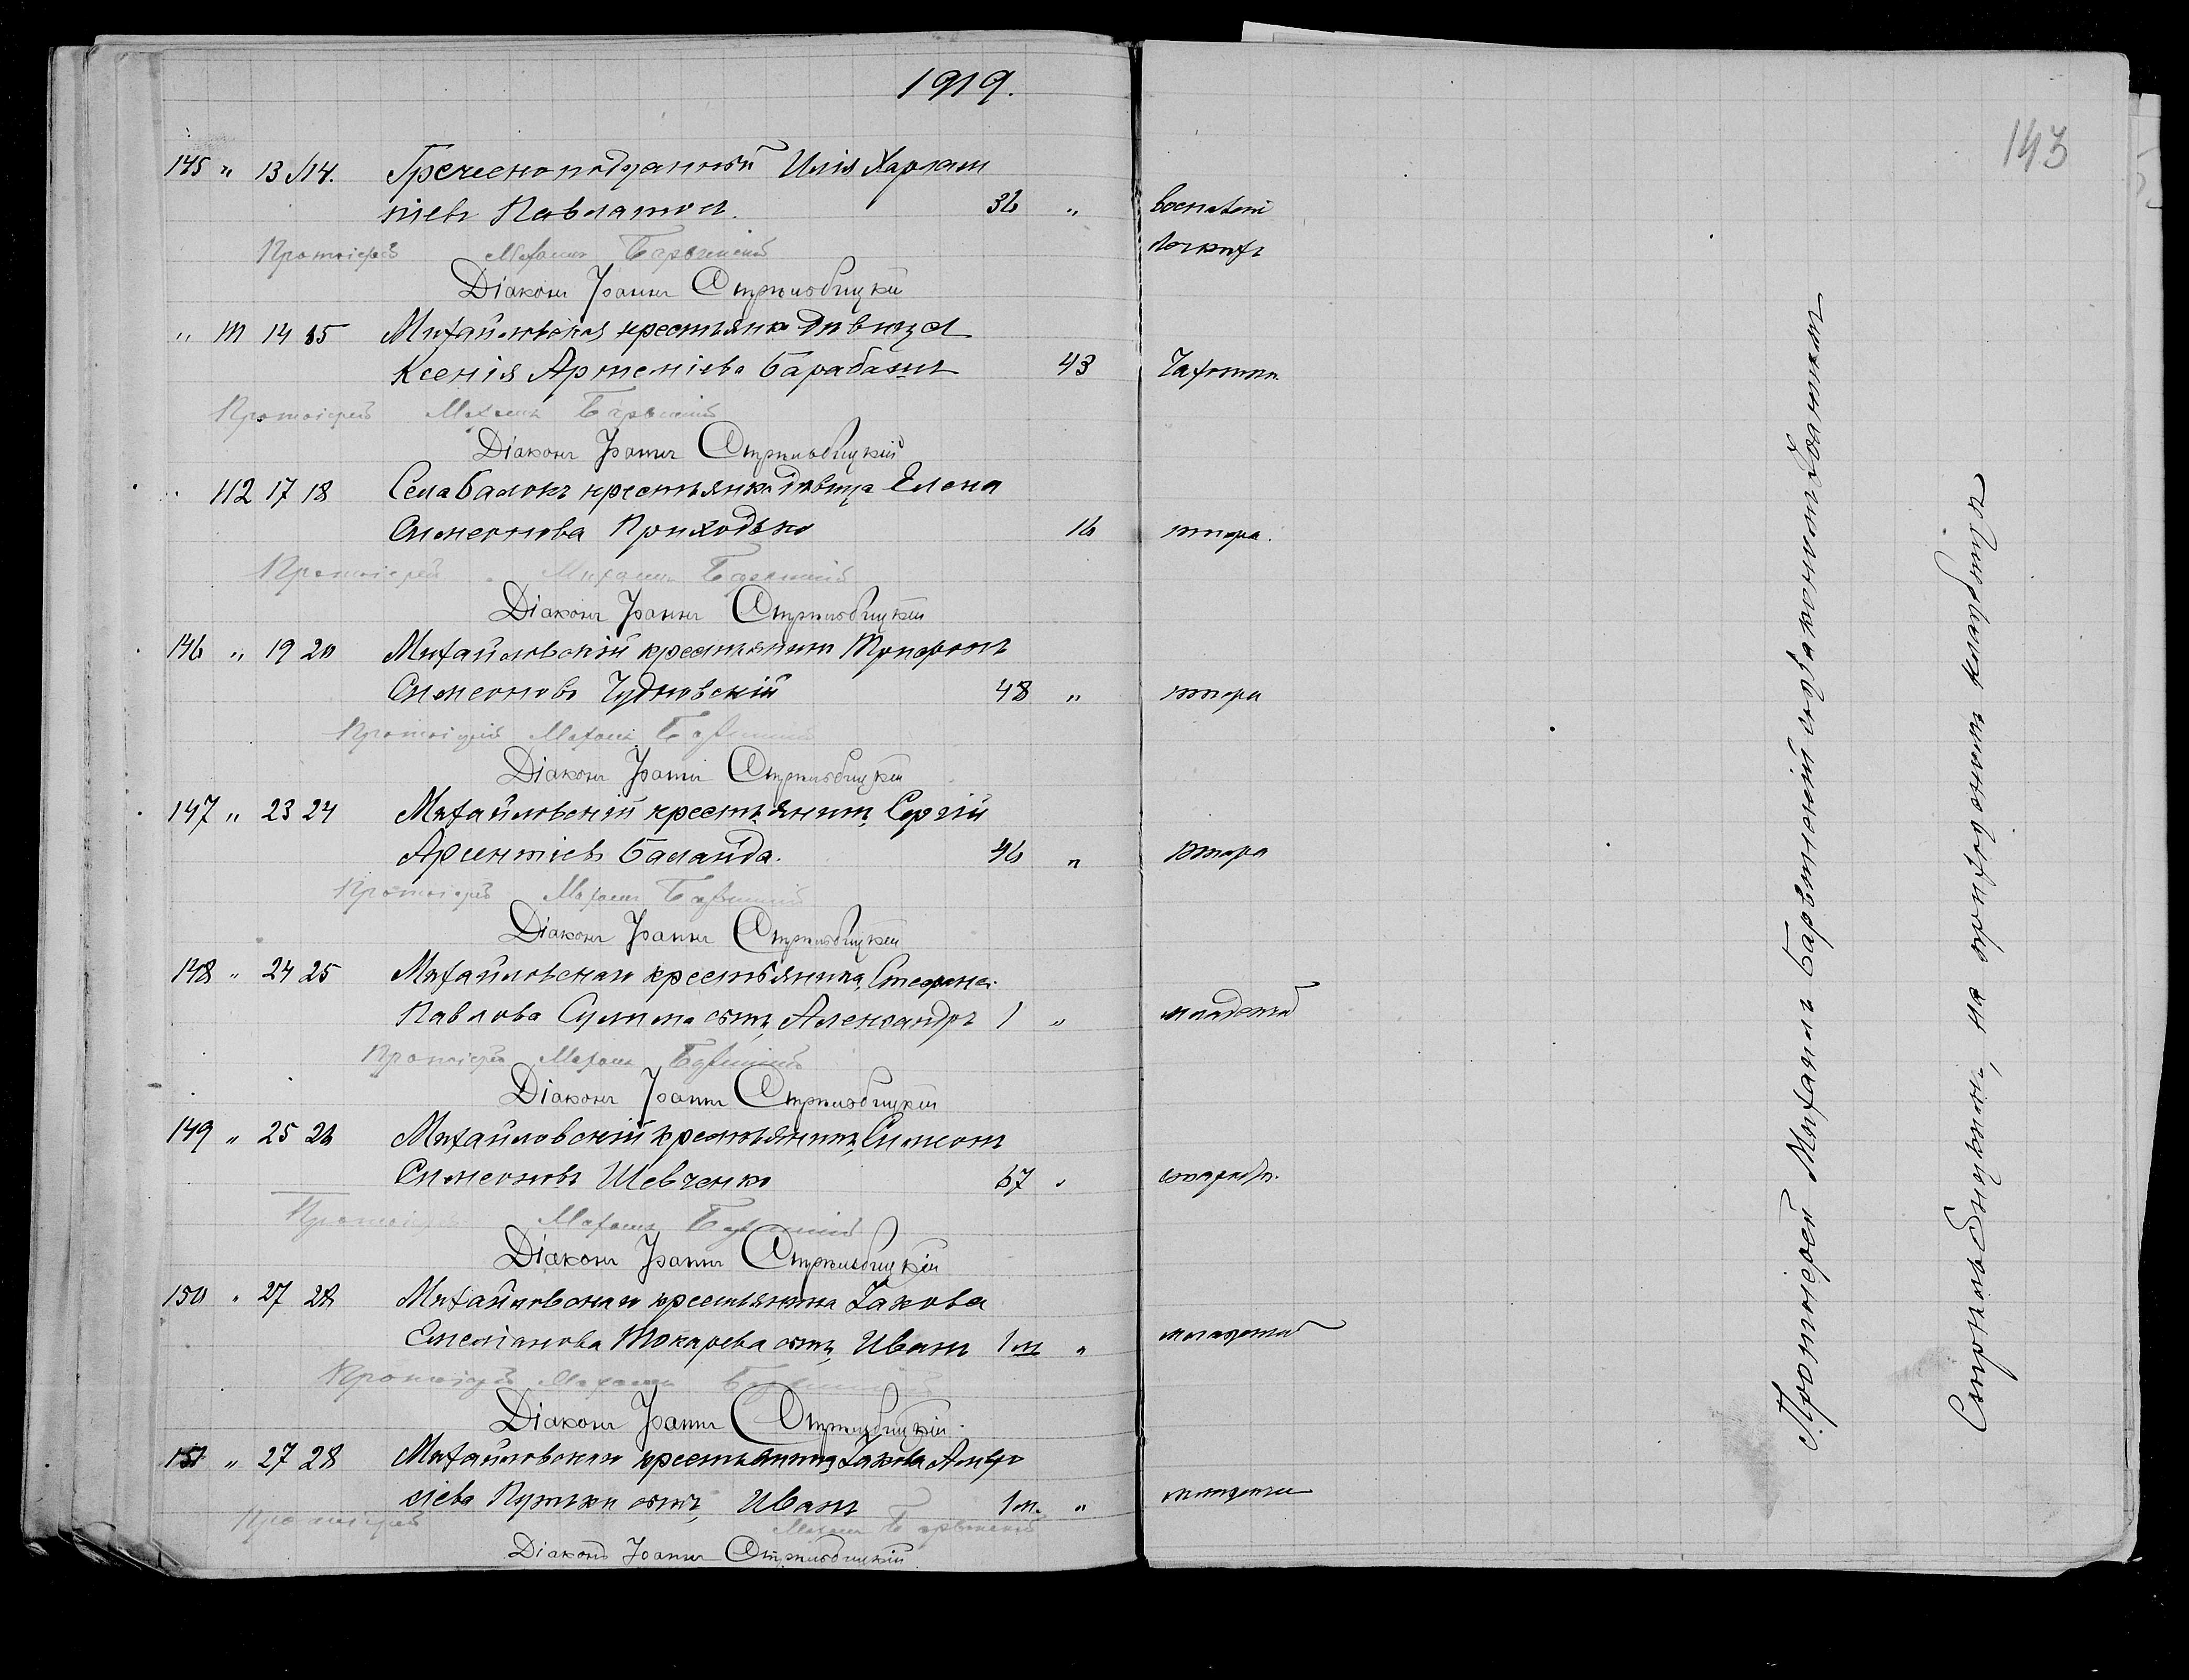 1919.
143
145 " 13 14. Греческоподданный Илія Харлам
піевъ Павлатол. 36 " Воспаленіе
легкихъ
Протоіерей Михаилъ Баръвинскій
Діаконъ Іоаннъ Стрильбицкій
" 111 14 15 Михайловская крестьянка девица
Ксенія Артеміева Барабашъ 43 Чахотки
Протоіерей Михаилъ Баръвинскій
Діаконъ Іоаннъ Стрильбицкій
" 112 17 18 Села Балокъ крестьянка девица Елена
Симеонова Приходько 16 тифа.
Протоіерей Михаилъ Баръвинскій
Діаконъ Іоаннъ Стрильбицкій
146 " 19 20 Михайловскій крестьянинъ Трифонъ
Симеоновъ Чудновскій 48 " тифа
Протоіерей Михаилъ Баръвинскій
Діаконъ Іоаннъ Стрильбицкій
147 " 23 24 Михайловскій крестьянинъ Сергій
Арсентіевъ Баланда. 46 " тифа
Протоіерей Михаилъ Баръвинскій
Діаконъ Іоаннъ Стрильбицкій
148 " 24 25 Михайловскаго крестьянина Стефана
Павлова Сулима сынъ Александръ 1 " младенч
Протоіерей Михаилъ Баръвинскій
Діаконъ Іоаннъ Стрильбицкій
149 " 25 26 Михайловскій крестьянинъ Симеонъ
Симеоновъ Шевченко 67 " старости.
Протоіерей Михаилъ Баръвинскій
Діаконъ Іоаннъ Стрильбицкій
150 " 27 28 Михайловскаго крестьянина Іакова
Емеліанова Токарева сынъ Иванъ 1 м " младенч
Протоіерей Михаилъ Баръвинскій
Діаконъ Іоаннъ Стрильбицкій.
151 " 27 28 Михайловскаго крестьянина Іакова
сынъ Иванъ 1 м. "
Протоіерей Михаилъ Баръвинскій
Діаконъ Іоаннъ Стрильбицкій
Протоіерей Михаилъ Баръвинскій съ діакономъ
на приходскомъ кладбищѣ